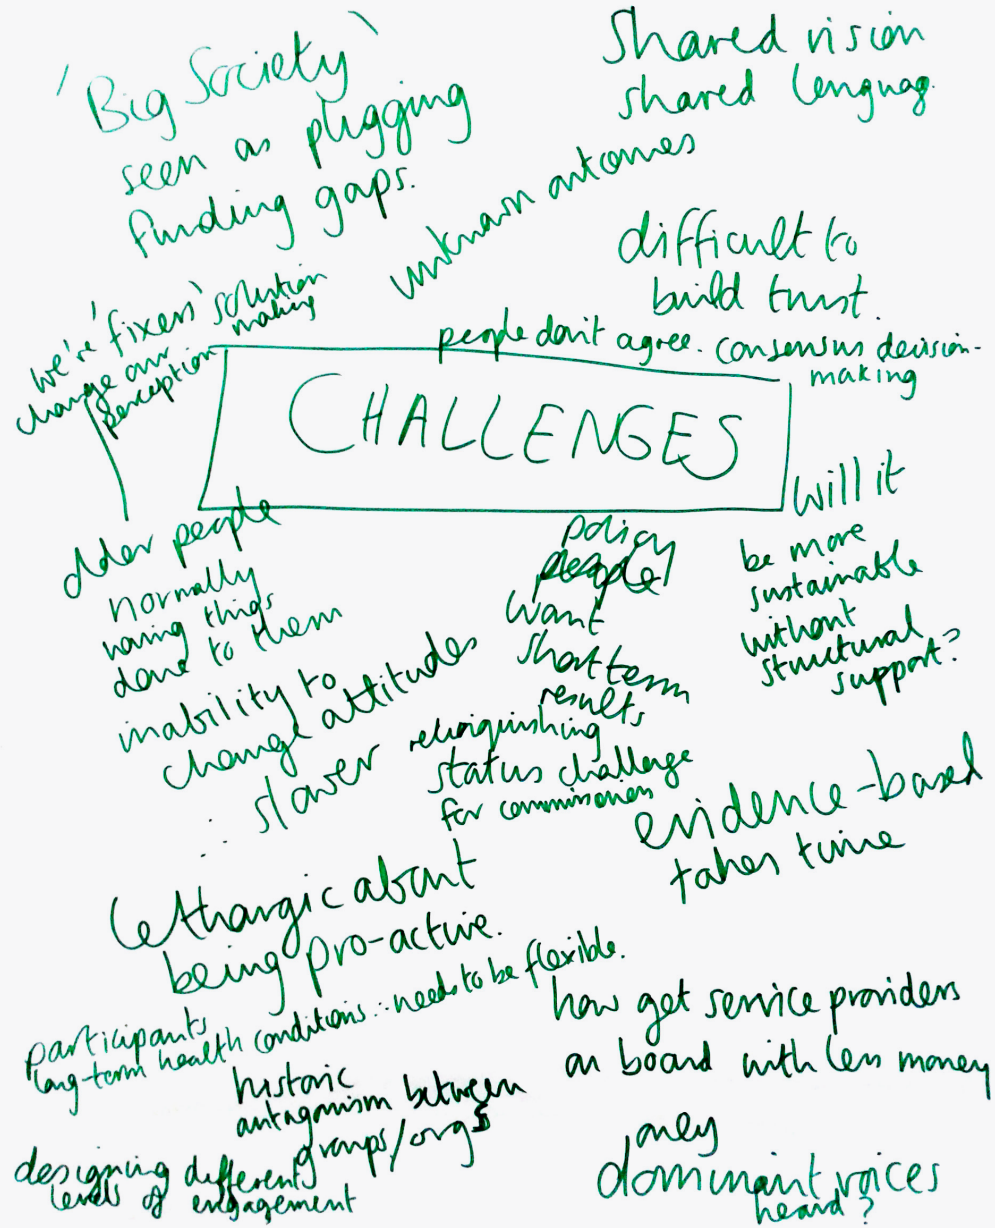 'Big Society'
seen as plugging
funding gaps.
Shared vision
shared lenguag.
unknown outcomes
difficult to
build trust.
we're 'fixers' solution
making
change our
perception
people don't agree. consensus decision-
making
CHALLENGES
older people
normally
having things
done to them
policy
people
want
short term
results
will it
be more
sustainable
without
structural
support?
inability to
change attitudes
∴ slower
relinquishing
status challenge
for commissioners
evidence-based
takes time
lethargic about
being pro-active.
participants
long-term health conditions ∴ needs to be flexible.
how get service providers
on board with less money
historic
antagonism between
groups/orgs
designing different
levels of engagement
only
dominant voices
heard?